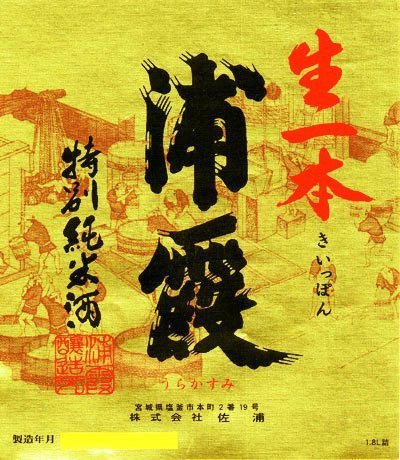 生一本
きいっぽん
浦霞
うらかすみ
特別純米酒
宮城県塩釜市本町2番19号
株式会社 佐浦
製造年月
1.8L詰